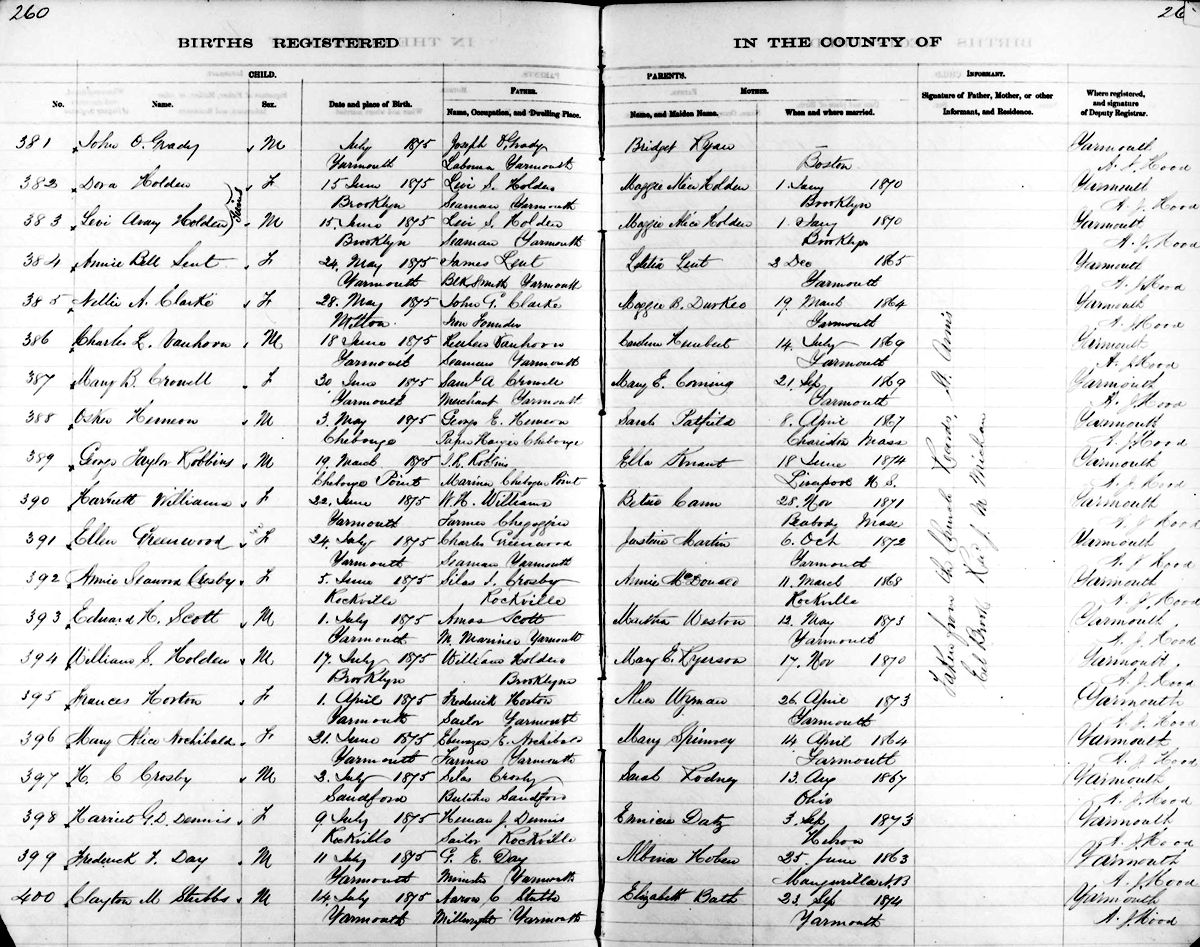 260
26
BIRTHS REGISTERED IN THE COUNTY OF
CHILD. PARENTS. INFORMANT.
FATHER. MOTHER.
No. Name. Sex. Date and place of Birth. Name, Occupation, and Dwelling Place. Name, and Maiden Name. When and where married. Signature of Father, Mother, or other Informant, and Residence. Where registered, and signature of Deputy Registrar.
381 John O. Grady M July 1875 Joseph O. Grady Bridget Ryan Yarmouth
Yarmouth Yarmouth Boston A J Hood
382 Dora Holden F 15 June 1875 Levi S. Holden Maggie Alice Holden 1 Jany 1870 Yarmouth
Brooklyn Seaman Yarmouth Brooklyn A. J. Hood
383 Levi Holden Twins M 15. June 1875 Levi S. Holden Maggie Alice Holden 1. Jany 1870 Yarmouth
Brooklyn Seaman Yarmouth Brooklyn A. J. Hood
384 Annie Bell Lent F 24. May 1875 James Lent Letitia Lent 2 Dec 1865 Yarmouth
Yarmouth Blk Smith Yarmouth Yarmouth A. J. Hood
385 Nellie A. Clarke F 28. May 1875 John G. Clarke Maggie B. Durkee 19 March 1864 Yarmouth
Milton Iron Founder Yarmouth A. J Hood
386 Charles E. Vanhorn M 18 June 1875 Vanhorn 14. July 1869 Yarmouth
Yarmouth Seaman Yarmouth Yarmouth A. J Hood
387 Mary B. Crowell F 30 June 1875 Saml A Crowell Mary E. Corning 21. Sep 1869 Yarmouth
Yarmouth Merchant Yarmouth Yarmouth A. J Hood
388 Hemeon M 3. May 1875 George E. Hemeon Sarah Hatfield 8. April 1867 Yarmouth
Chebogue Paper Hanger Chebogue Mass A. J Hood
389 George Taylor Robbins M 19. March 1875 Robbins Ella 18 June 1874 Yarmouth
Chebogue Point Point Liverpool N. S. A. J. Hood
390 Harriett Williams F 22. June 1875 W. H. Williams Betsie Cann 28. Nov 1871 Yarmouth
Yarmouth Farmer Chegoggin Peabody Mass A. J Hood
391 Ellen Greenwood F 24. July 1875 Charles Greenwood Justina Martin 6. Oct 1872 Yarmouth
Yarmouth Seaman Yarmouth Yarmouth A. J Hood
392 Annie Crosby F 5. June 1875 Silas Crosby Annie McDonald 11. March 1868 Yarmouth
Rockville Rockville Rockville A. J Hood
393 Edward H. Scott M 1. July 1875 Amos Scott Martha Weston 12. May 1873 Yarmouth
Yarmouth M. Mariner Yarmouth Yarmouth A. J Hood
394 William S. Holden M 17. July 1875 William Holden Mary E. Ryerson 17. Nov 1870 Yarmouth
Brooklyn Brooklyn A. J Hood
395 Frances Horton F 1. April 1875 Frederick Horton Alice Wyman 26 April 1873 Yarmouth
Yarmouth Sailor Yarmouth Yarmouth A. J Hood
396 Mary Alice Archibald F 21. June 1875 Ebenezer E. Archibald Mary Spinney 14 April 1864 Yarmouth
Yarmouth Farmer Yarmouth Yarmouth A. J Hood
397 H. C Crosby M 2. July 1875 Silas Crosby Sarah Rodney 13. Aug 1867 Yarmouth
Sandford Butcher Sandford Ohio A. J. Hood
398 Harriet G.D. Dennis F 9 July 1875 Heman J. Dennis 3. Sep 1873 Yarmouth
Rockville Sailor Rockville Hebron A. J Hood
399 Frederick F. Day M 11 July 1875 G. E. Day Albina Hoben 25. June 1863 Yarmouth
Yarmouth Minister Yarmouth N.B A. J Hood
400 Clayton M Stubbs M 14. July 1875 Aaron C Stubbs Elizabeth Bath 23. Sep 1874 Yarmouth
Yarmouth Millwright Yarmouth Yarmouth A. J Hood
Taken from the Church Records, St. Ann's
Eel Brook